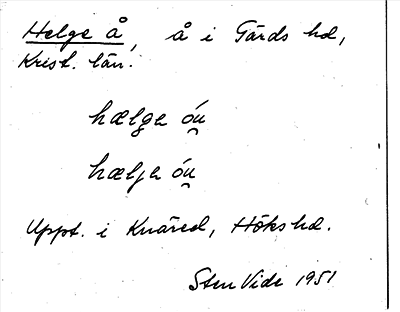 Helge å, å i Gärds hd,
Krist. län.
hælge óu̯
hælje óu̯
Uppt. i Knäred, Höks hd.
Sten Vide 1951